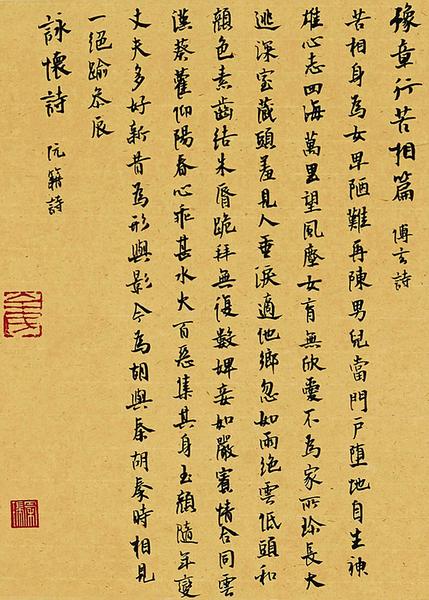 豫章行苦相篇 傅玄詩
苦相身為女卑陋難再陳男兒當門戶墮地自生神
雄心志四海萬里望風塵女育無欣愛不為家所珍長大
逃深室藏頭羞見人垂淚適他鄉忽如雨絕雲低頭和
顏色素齒結朱脣跪拜無復數婢妾如嚴賓情合同雲
漢葵藿仰陽春心乖甚水火百惡集其身玉顏隨年變
丈夫多好新昔為形與影今為胡與秦胡秦時相見
一絕踰參辰
詠懷詩 阮籍詩